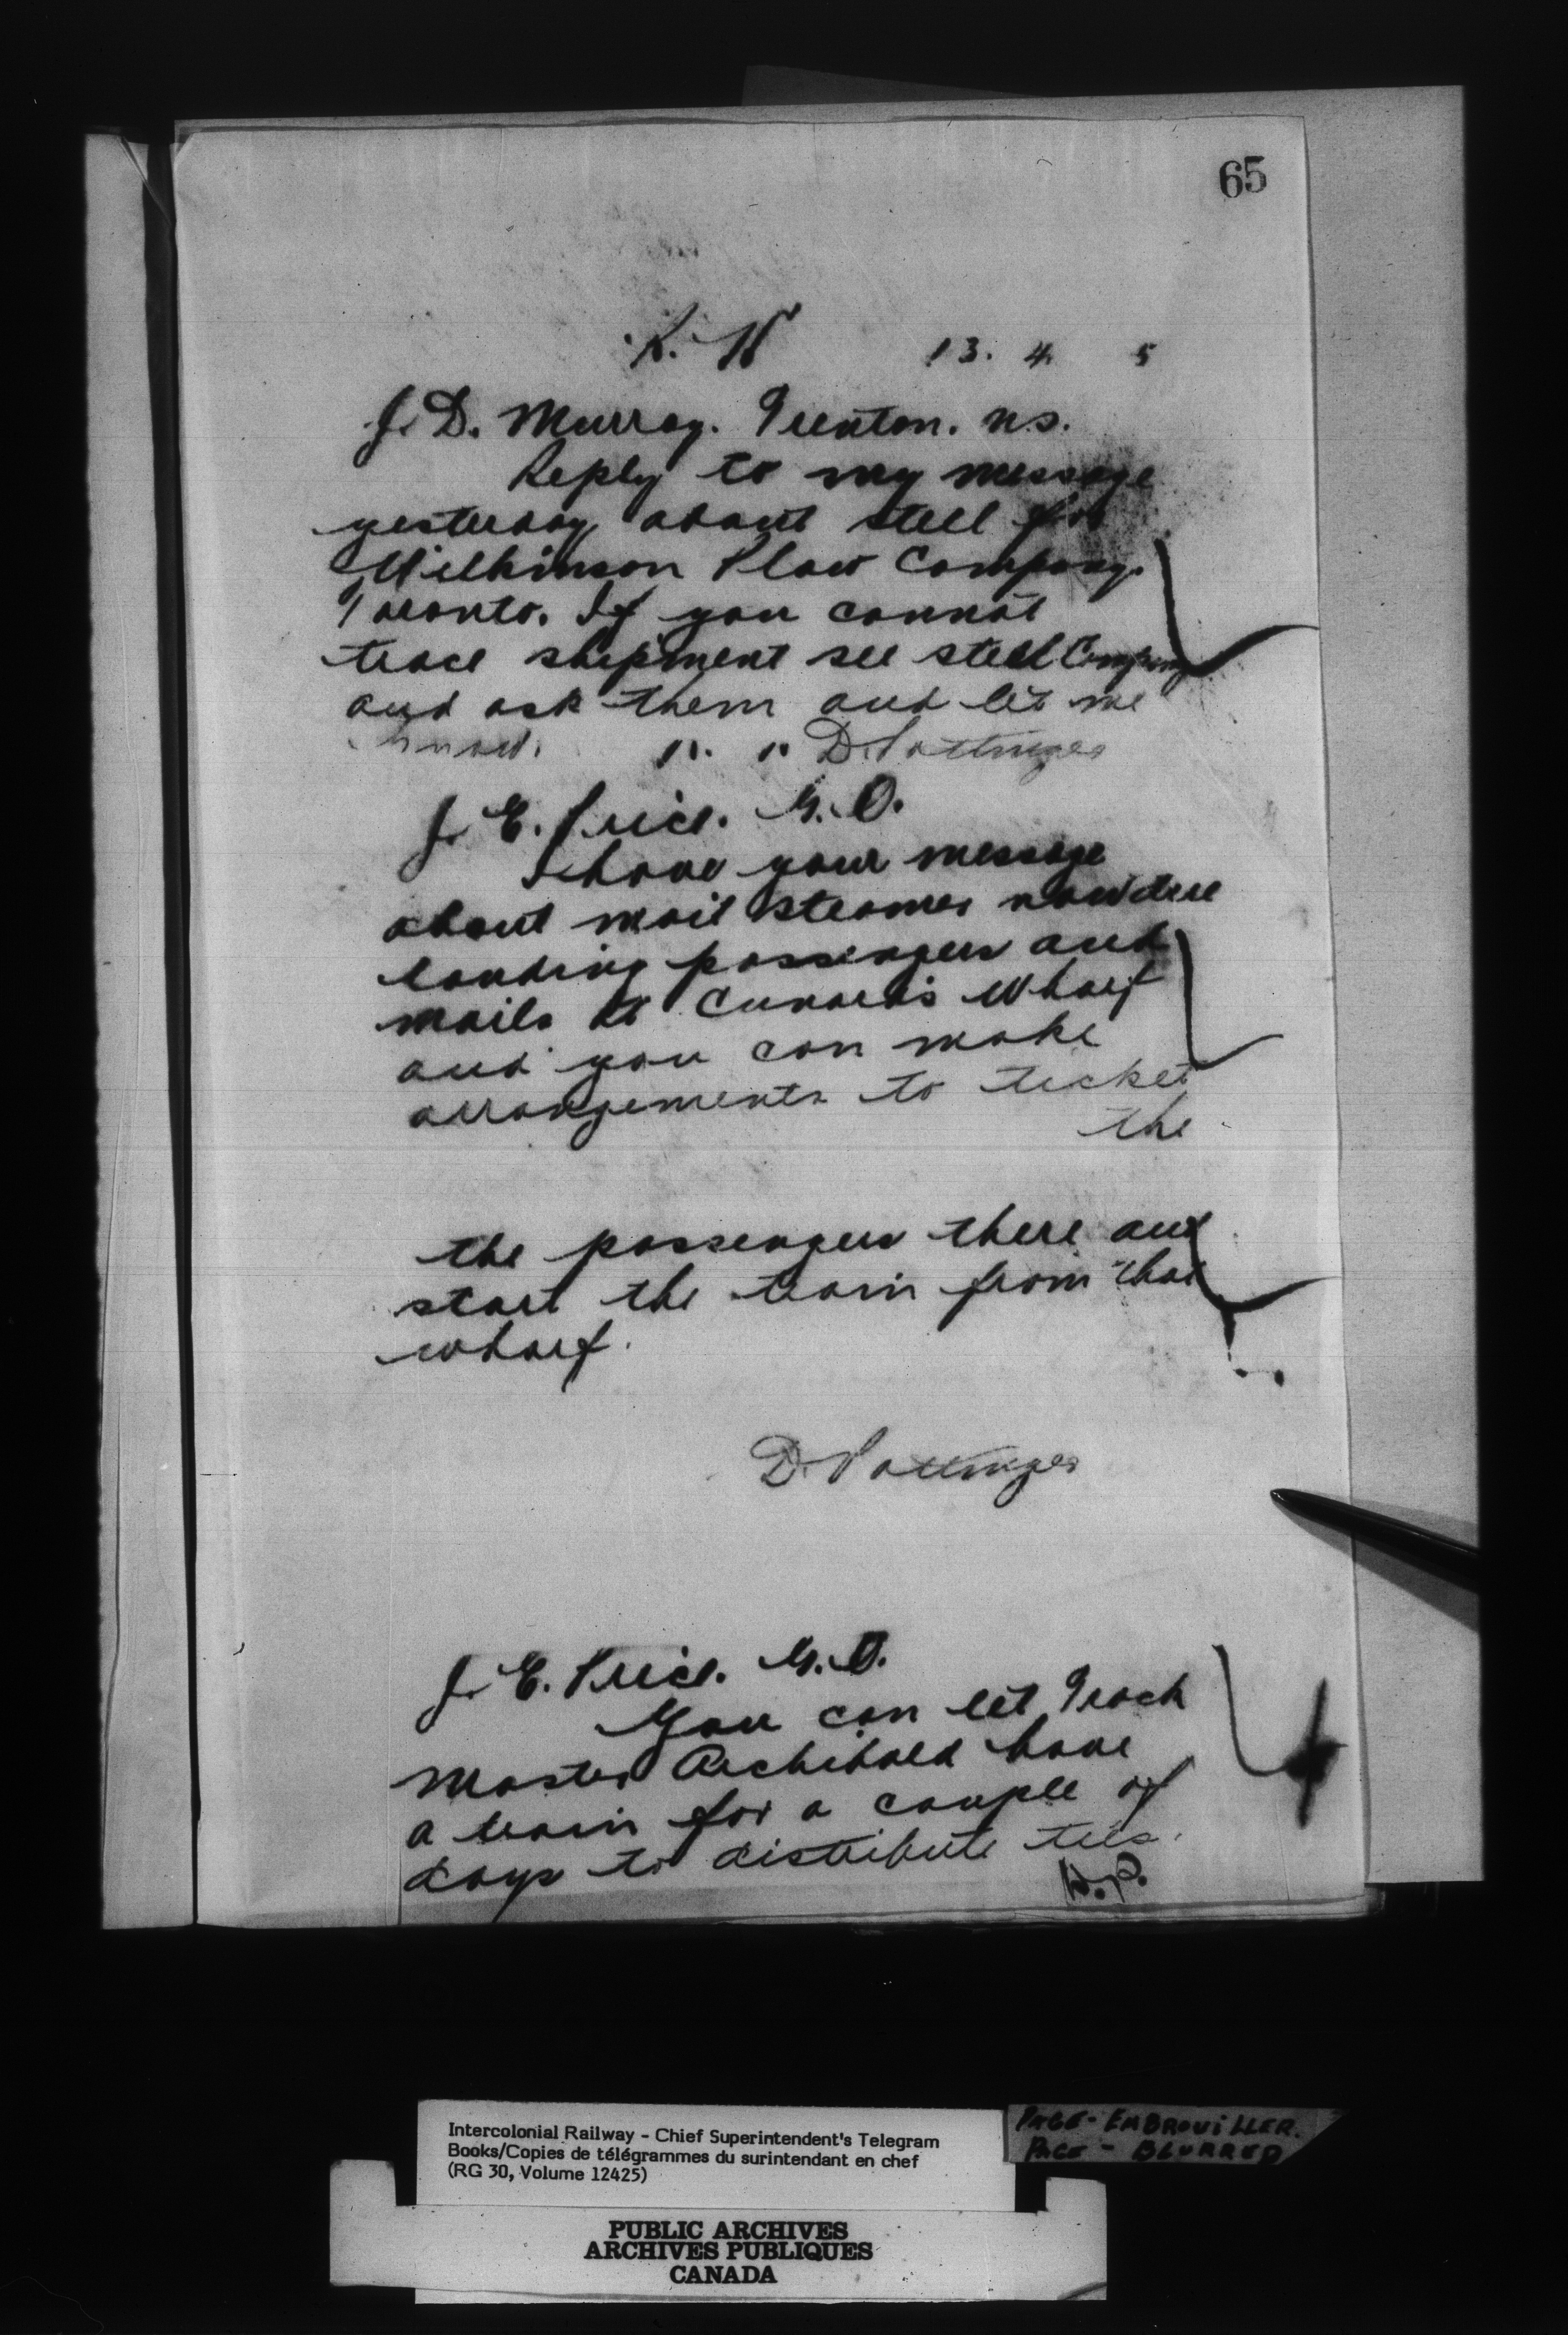 65
K. H 13. 4 5
J. D. Murray. Trenton. N.S.
Reply to my message
yesterday about steel for
Wilkinson Plow Company.
Toronto. If you cannot
trace shipment see steel Company
and ask them and let me
know. D. Pottinger
J. E. Price. G.O.
I have your message
about mail steamer now due
landing passengers and
mails at Cunard's Wharf
and you can make
arrangements to ticket
the
the passengers there and
start the train from that
wharf.
D. Pottinger
J. E. Price. G.O.
You can let Track
Master Archibald have
a train for a couple of
days to distribute ties.
D.P.
Intercolonial Railway - Chief Superintendent's Telegram
Books/Copies de télégrammes du surintendant en chef
(RG 30, Volume 12425)
PAGE - EMBROUILLER.
PAGE - BLURRED
PUBLIC ARCHIVES
ARCHIVES PUBLIQUES
CANADA